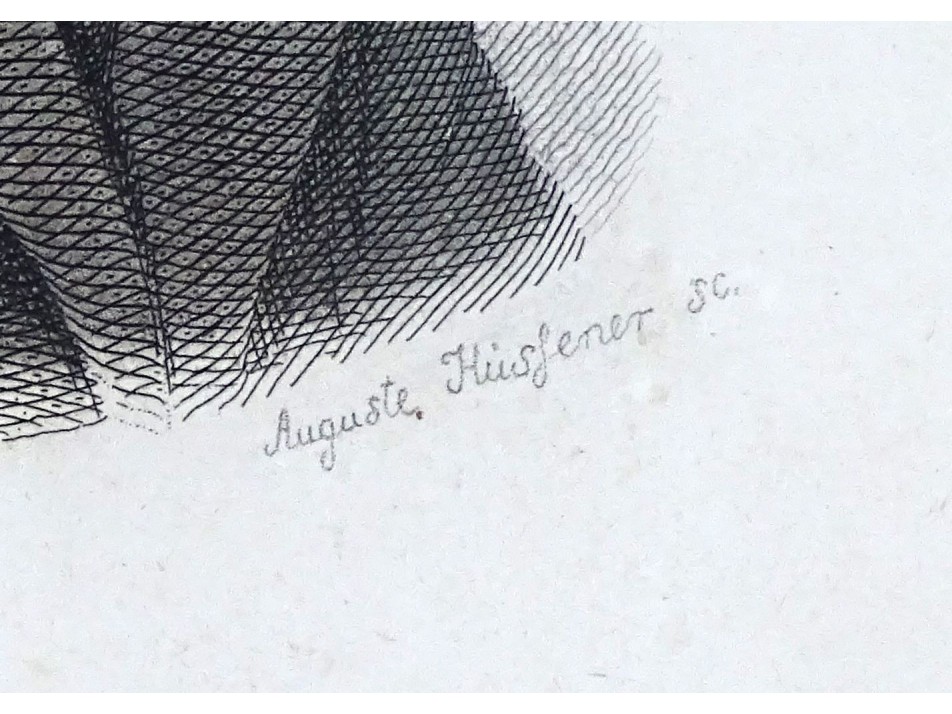 Auguste. Hüsſener sc.